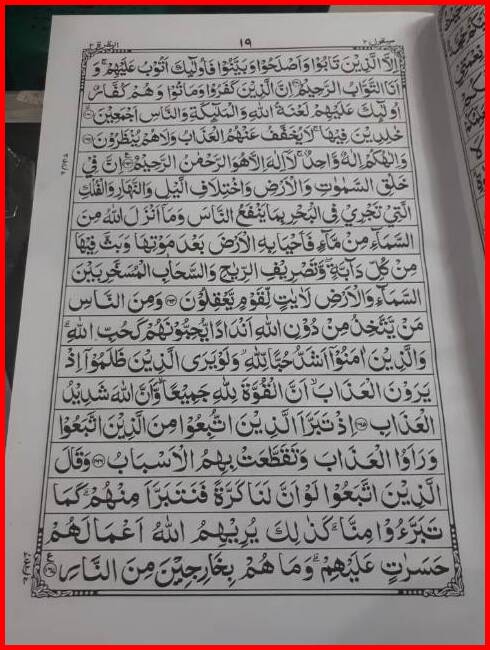 البقرة ٢
١٩
سيقول ٢
اِلَّا الَّذِيْنَ تَابُوْا وَاَصْلَحُوْا وَبَيَّنُوْا فَاُولٰٓئِكَ اَتُوْبُ عَلَيْهِمْ ۚ وَ
اَنَا التَّوَّابُ الرَّحِيْمُ ۝ اِنَّ الَّذِيْنَ كَفَرُوْا وَمَاتُوْا وَهُمْ كُفَّارٌ
اُولٰٓئِكَ عَلَيْهِمْ لَعْنَةُ اللّٰهِ وَالْمَلٰٓئِكَةِ وَالنَّاسِ اَجْمَعِيْنَ ۝
خٰلِدِيْنَ فِيْهَا ۚ لَا يُخَفَّفُ عَنْهُمُ الْعَذَابُ وَلَا هُمْ يُنْظَرُوْنَ ۝
وَاِلٰهُكُمْ اِلٰهٌ وَّاحِدٌ ۚ لَآ اِلٰهَ اِلَّا هُوَ الرَّحْمٰنُ الرَّحِيْمُ ۝ اِنَّ فِيْ
خَلْقِ السَّمٰوٰتِ وَالْاَرْضِ وَاخْتِلَافِ الَّيْلِ وَالنَّهَارِ وَالْفُلْكِ
الَّتِيْ تَجْرِيْ فِي الْبَحْرِ بِمَا يَنْفَعُ النَّاسَ وَمَآ اَنْزَلَ اللّٰهُ مِنَ
السَّمَآءِ مِنْ مَّآءٍ فَاَحْيَا بِهِ الْاَرْضَ بَعْدَ مَوْتِهَا وَبَثَّ فِيْهَا
مِنْ كُلِّ دَآبَّةٍ ۪ وَّتَصْرِيْفِ الرِّيٰحِ وَالسَّحَابِ الْمُسَخَّرِ بَيْنَ
السَّمَآءِ وَالْاَرْضِ لَاٰيٰتٍ لِّقَوْمٍ يَّعْقِلُوْنَ ۝ وَمِنَ النَّاسِ
مَنْ يَّتَّخِذُ مِنْ دُوْنِ اللّٰهِ اَنْدَادًا يُّحِبُّوْنَهُمْ كَحُبِّ اللّٰهِ ۭ
وَالَّذِيْنَ اٰمَنُوْٓا اَشَدُّ حُبًّا لِّلّٰهِ ۭ وَلَوْ يَرَى الَّذِيْنَ ظَلَمُوْٓا اِذْ
يَرَوْنَ الْعَذَابَ ۙ اَنَّ الْقُوَّةَ لِلّٰهِ جَمِيْعًا ۙ وَّاَنَّ اللّٰهَ شَدِيْدُ
الْعَذَابِ ۝ اِذْ تَبَرَّاَ الَّذِيْنَ اتُّبِعُوْا مِنَ الَّذِيْنَ اتَّبَعُوْا
وَرَاَوُا الْعَذَابَ وَتَقَطَّعَتْ بِهِمُ الْاَسْبَابُ ۝ وَقَالَ
الَّذِيْنَ اتَّبَعُوْا لَوْ اَنَّ لَنَا كَرَّةً فَنَتَبَرَّاَ مِنْهُمْ كَمَا
تَبَرَّءُوْا مِنَّا ۭ كَذٰلِكَ يُرِيْهِمُ اللّٰهُ اَعْمَالَهُمْ
حَسَرٰتٍ عَلَيْهِمْ ۭ وَمَا هُمْ بِخٰرِجِيْنَ مِنَ النَّارِ ۝